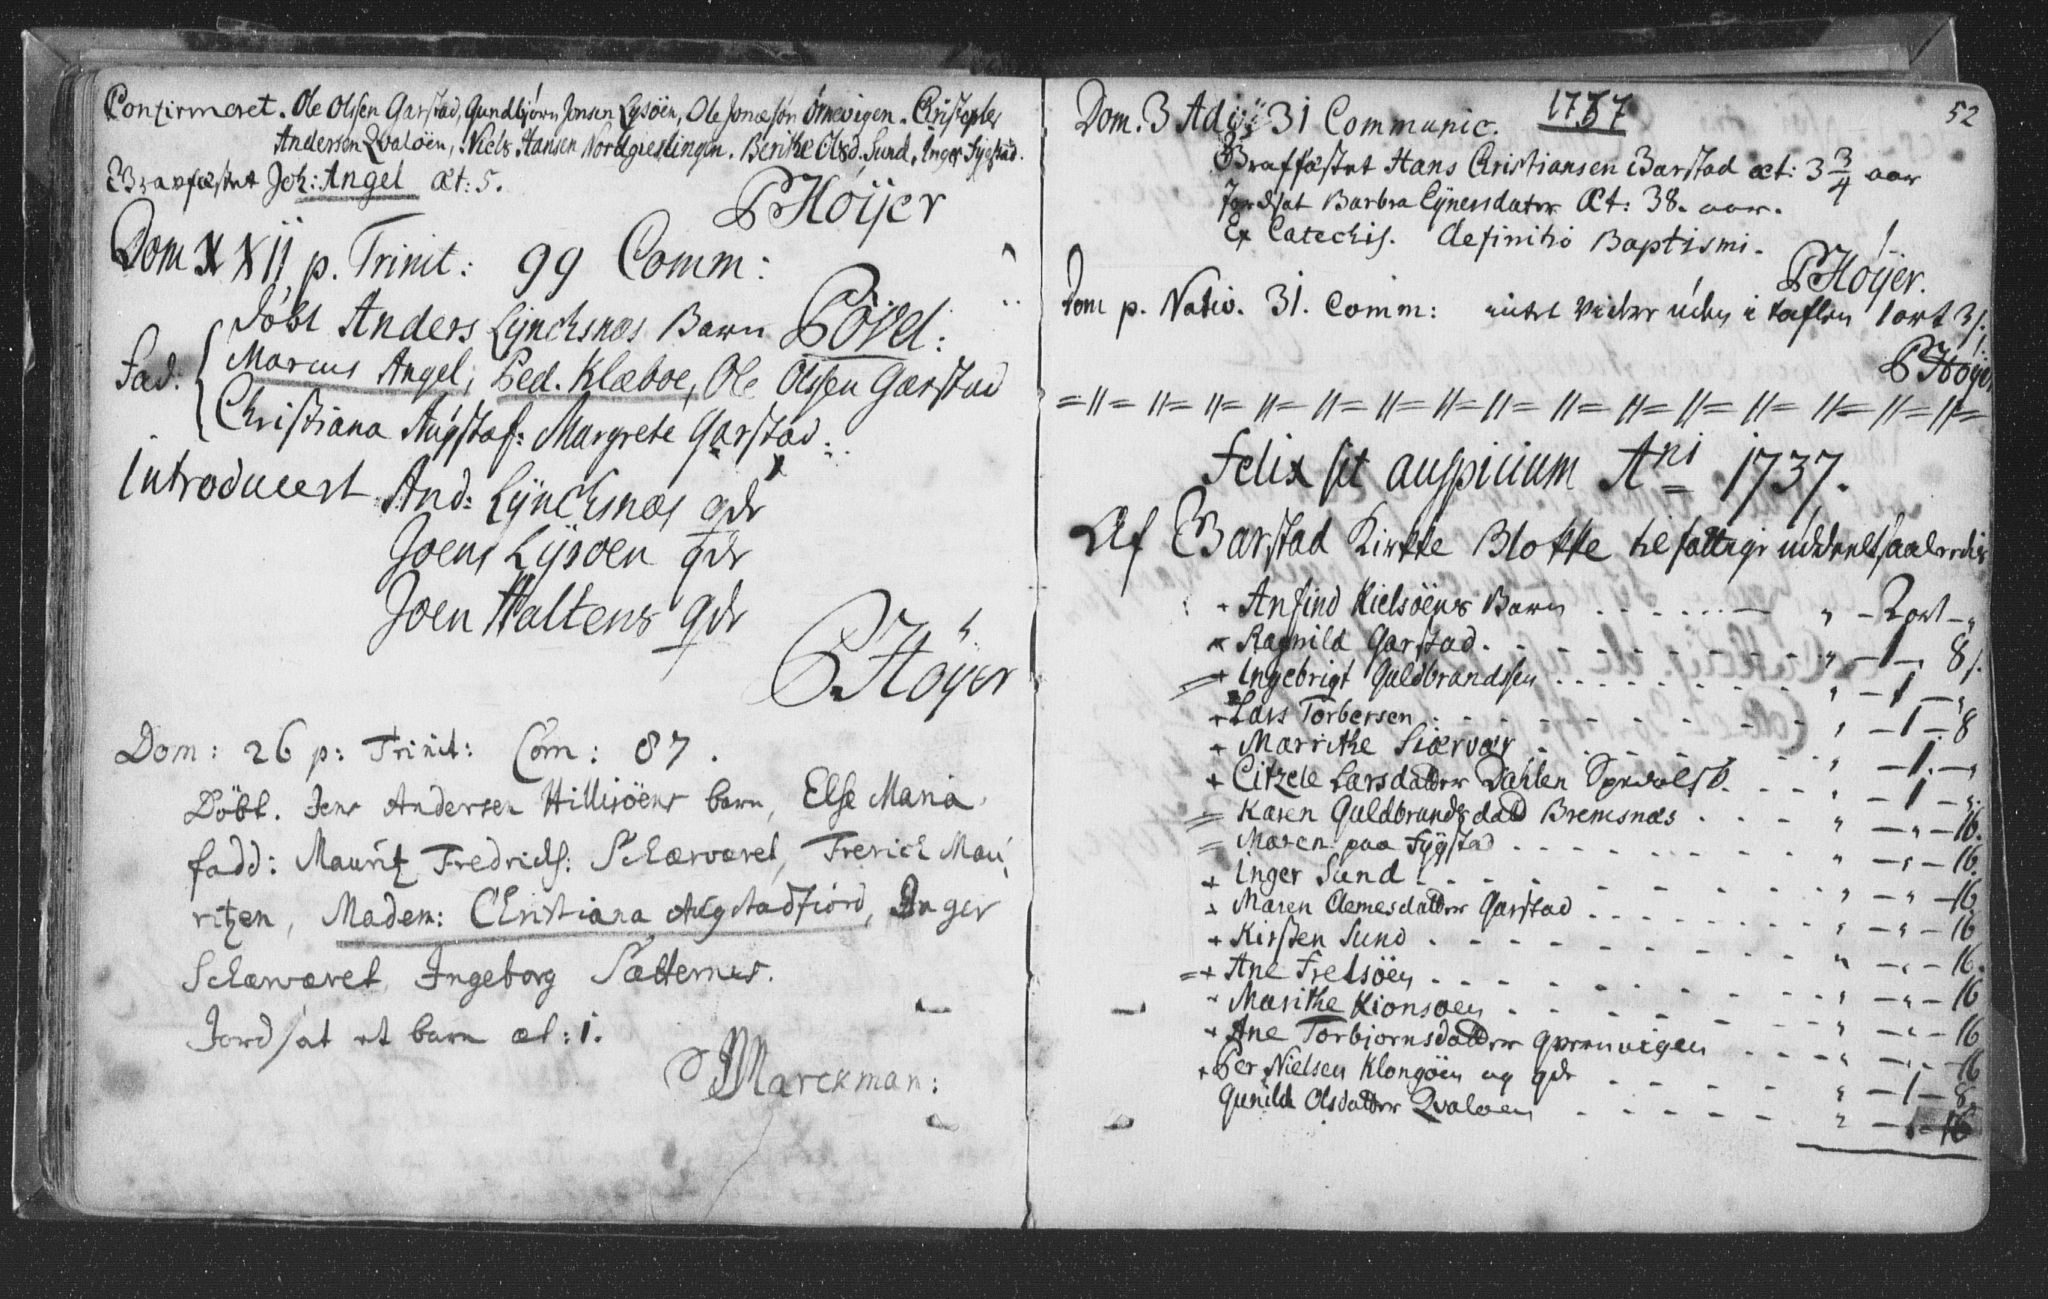 Confirmeret. Ole Olsen Garstad, Gundbjørn Jonsen Lysöen, Ole Jonasön Örnevigen. Christopher
Andersen Qvalöen, Niels Hansen Nordgieslingen. Berithe Olsd. Sund, Inger Sygstad.
Gravfæstet Joh: Angel æt: 5.
PHöijer
Dom XXII p. Trinit: 99 Comm:
Döbt Anders Lyncksnæs Barn Povel:
Fad: Marcus Angel, Ped. Klæboe, Ole Olssen Garstad
Christiana Augstaf: Margrete Garstad.
Introducert And: Lyncksnæs qdr
Joens Lysoen qdr
Joen Haltens qdr
PHöyer
Dom: 26 p: Trinit: Com: 87.
Döbt. Jens Andersen Hillisöens barn, Else Maria
fadd: Mauritz Fredrichs: Schærværet, Frerich Mau
ritzen, Madem: Christiana Augstadfiord, Inger
Schærværet, Ingeborg Sætternes.
Jordsat et barn æt: 1.
Marckman:
52
Dom. 3 Adv: 31 Communic. 1737
Graffæstet Hans Christiansen Garstad æt: 3 3/4 aar
Jordsat Barbra Eynersdater Æt: 38. aar.
Ex Catechis. definitio Baptismi.
PHöijer.
Dom p. Nativ. 31. Comm: intet videre uden i taflen 1 ort 3 s.
PHöijer
Felix sit auspicium Ani 1737.
Af Garstad Kirkke Blokke til fattige uddeelt saaledis
+ Anfind Kielsöens Barn . . . . " - 2 ort - "
Ragnild Garstad . . . . " - 1 - 8 s.
+ Ingebrigt Guldbrandssen . . . . " - 1 - "
+ Lars Torbersen . . . . " - 1 - 8
+ Marrithe Siærvær . . . . " - 1 - "
+ Citzele Larsdatter Dahlen . . . . " - 1 - "
Karen Guldbrandsdatt Bremsnæs . . . . " - " - 16.
Maren paa Sygstad . . . . " - " - 16.
+ Inger Sund . . . . " - " - 16
+ Maren Clemesdatter Garstad . . . . " - " - 16
+ Kirsten Sund . . . . " - " - 16.
+ Ane Fretsöen . . . . " - " - 16
Marithe Kionsöen . . . . " - " - 16
+ Ane Torbiornsdatter . . . . " - " - 16
+ Per Nielsen Klongöen og qdr . . . . " - 1 - 8.
Gunild Olsdatter Qvaloen . . . . " - " - 16